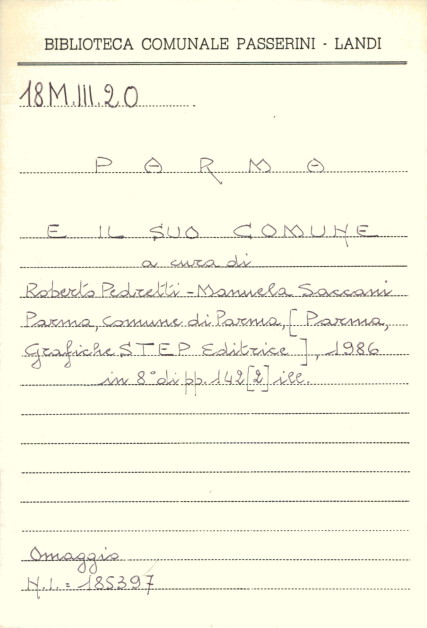 BIBLIOTECA COMUNALE PASSERINI - LANDI
18M.III.20
PARMA
E IL SUO COMUNE
a cura di
Roberto Pedretti - Manuela Saccani
Parma, comune di Parma, [Parma,
Grafiche STEP Editrice], 1986
in 8° di pp. 142[2] ill.
Omaggio
N.I. = 185397